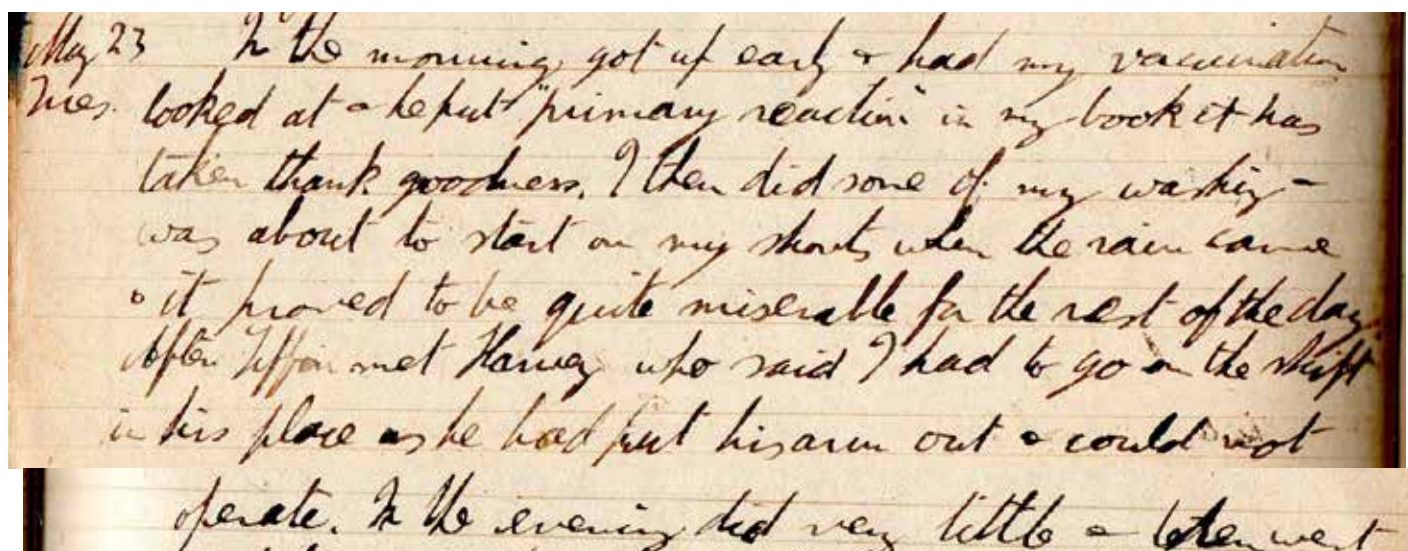 May 23 In the morning got up early & had my vaccination
Tues. looked at & he put "primary reaction" in my book it has
taken thank goodness. I then did some of my washing &
was about to start on my shorts when the rain came
& it proved to be quite miserable for the rest of the day.
After Tiffin met Harvey who said I had to go on the shift
in his place as he had put his arm out & could not
operate. In the evening did very little & then went